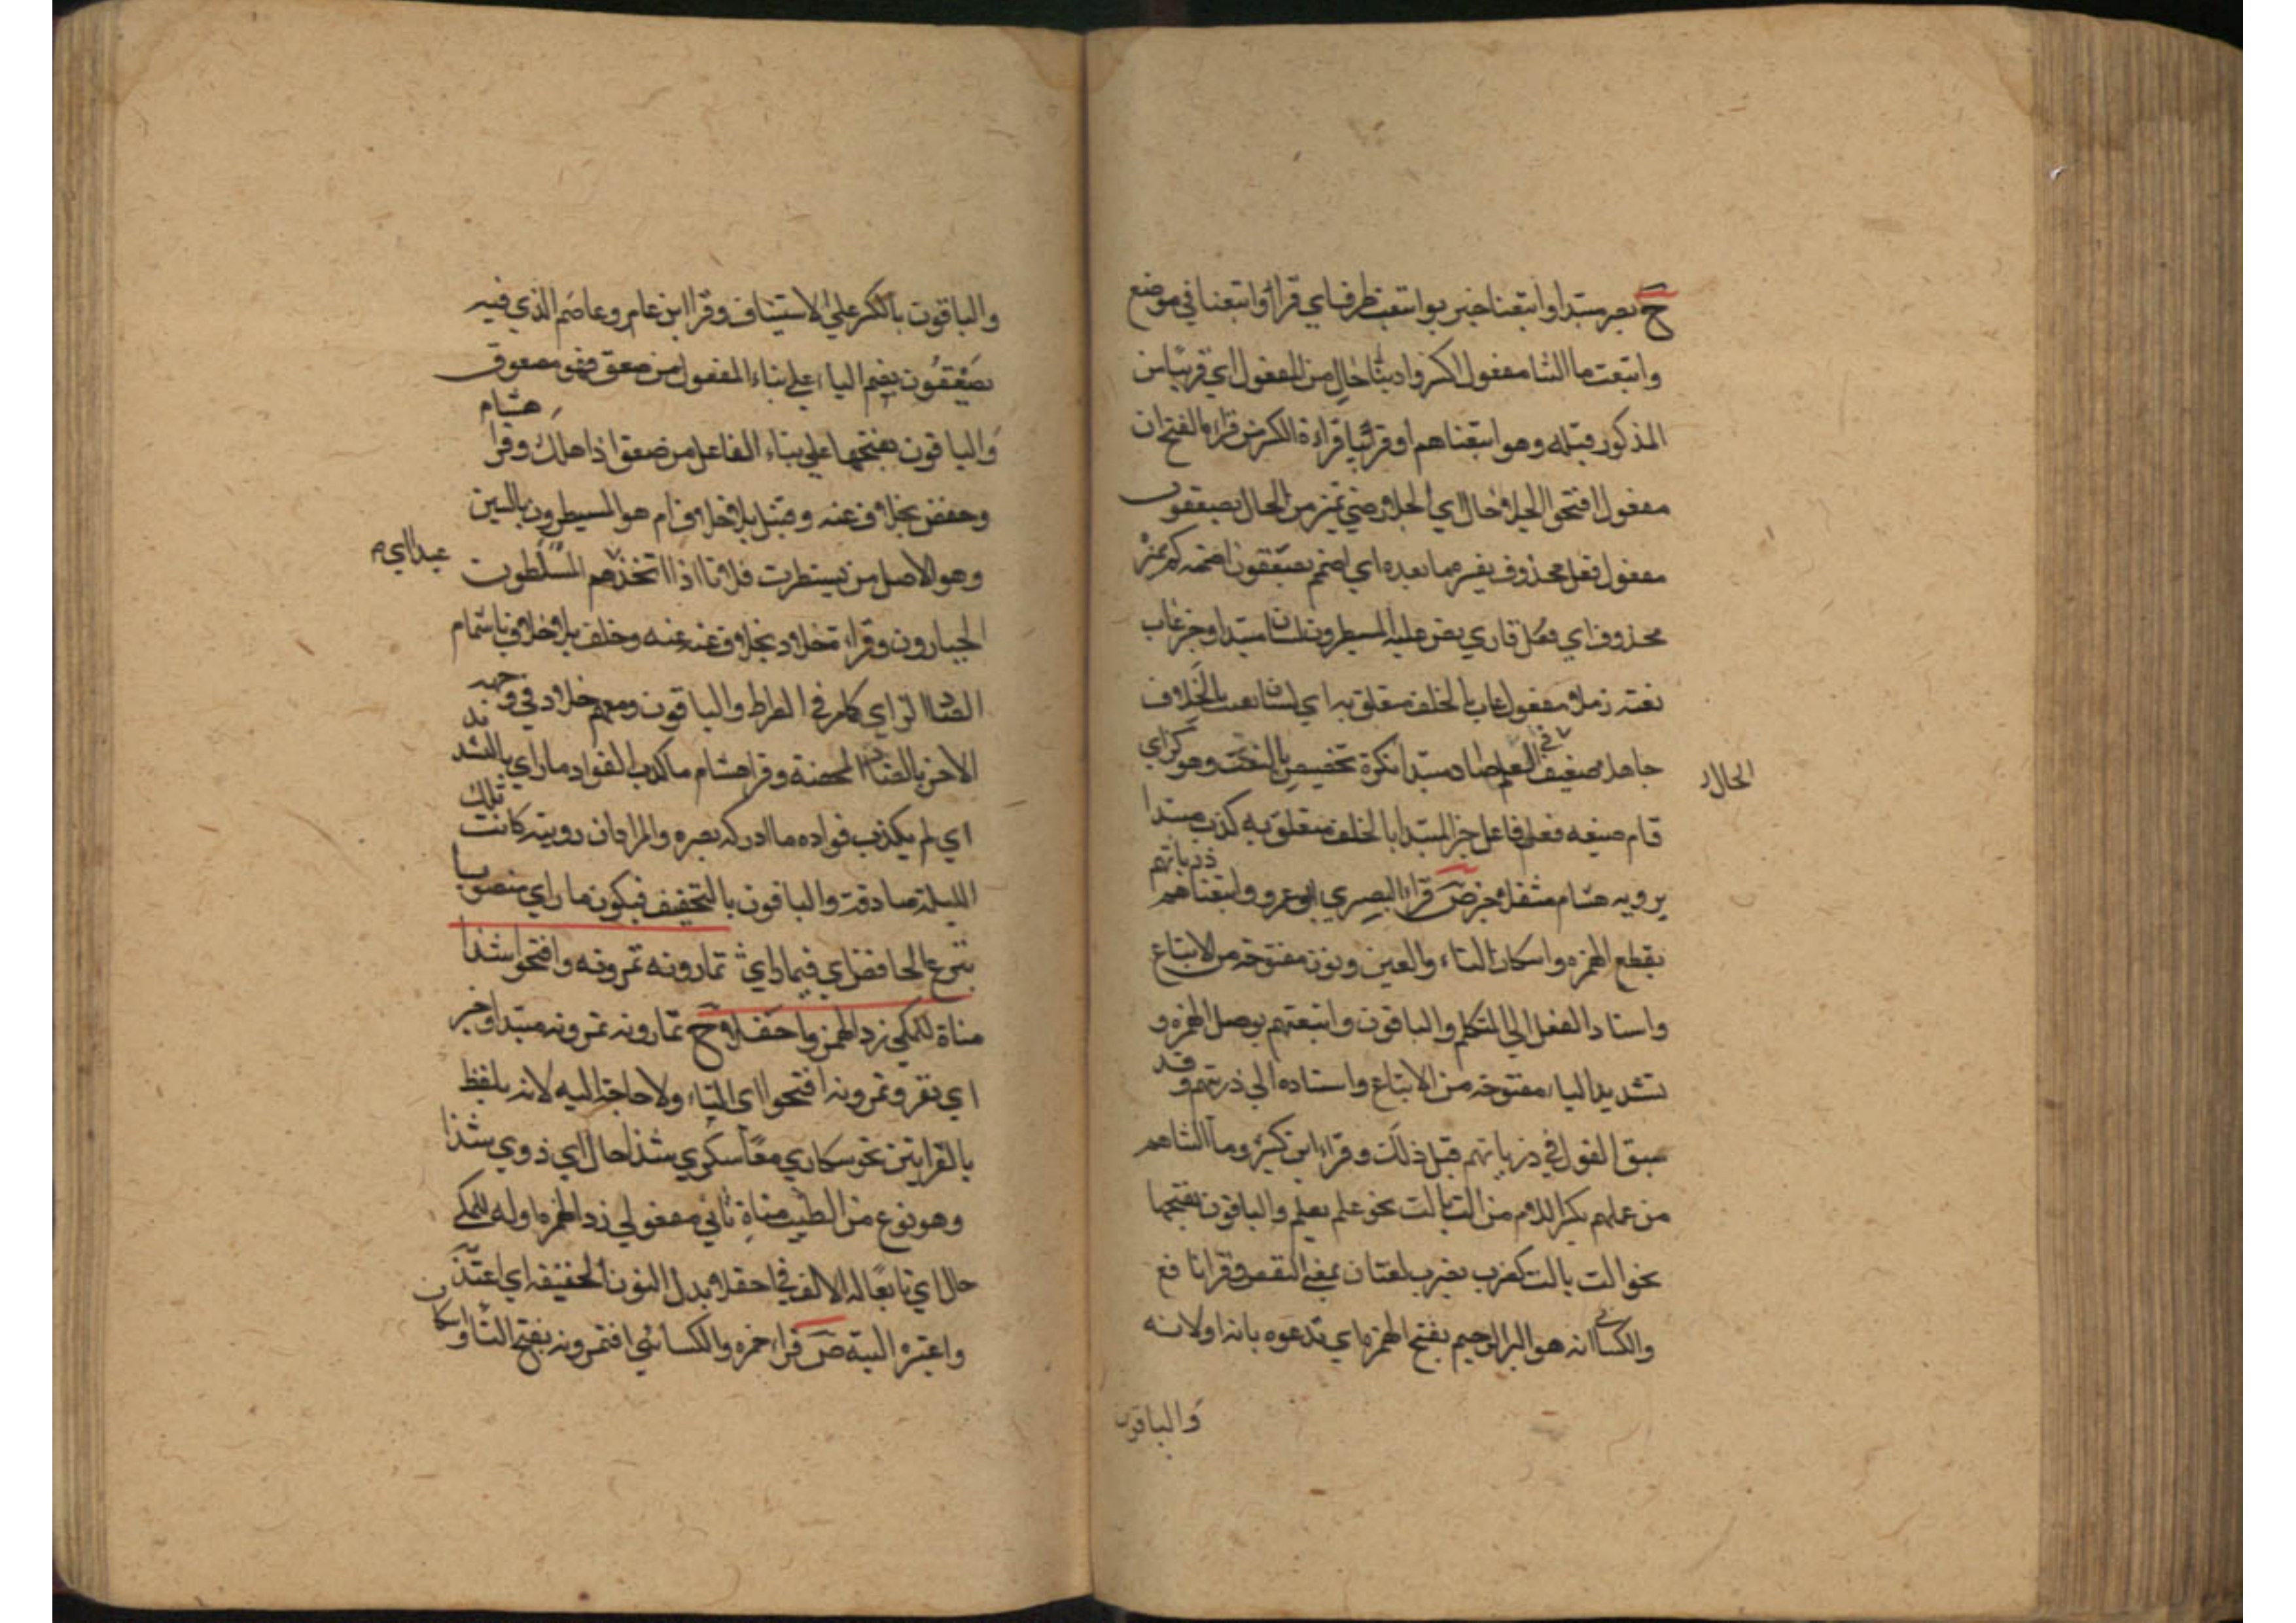 ح بصر مبتدا واتبعنا خبر بواتبعت ظرف اي قرا واتبعنا في موضع
واتبعت ما التنا مفعول اكسروا دنيا حال من المفعول اي قريبا من
المذكور قبله وهو اتبعناهم او قريبا قراءة الكسر من قراءة الفتح ان
مفعول افتحوا الجلا حال اي الجلا رضي تميز من الحال يصعقون
مفعول فعل محذوف يفسره ما بعده اي اضمم يصعقون اضممه كم نص
محذوف اي فعل قاري نص عليه المسيطرون لسان مبتدا وخبر عاب
نعته زملا مفعول عاب بالخلف متعلق به اي لسان بعيب بالخلاف
جاهلا ضعيف في العلم صاد مبتدا نكرة تخصيص بالنعت وهو كزاي
الحال
قام ضبعه فعل فاعل خبر المبتدا بالخلف متعلق به كذب مبتدا
يرويه هشام مثقلا خبر ص قراء البصري ابو عمرو واتبعناهم ذرياتهم
بقطع الهمزه واسكان التاء والعين ونون مفتوحة من الاتباع
واسناد الفعل الي المتكلم والباقون واتبعتهم بوصل الهمزه و
تشديد التاء مفتوحة من الاتباع واسناده الي ذريتهم وقد
سبق القول في ذرياتهم قبل ذلك وقراء ابن كثير وما التناهم
من عملهم بكسر اللام من الت يالت نحو علم يعلم والباقون بفتحها
نحو الت يالت كضرب يضرب لغتان بمعني النقص وقرا نافع
والكسائي انه هو البر الرحيم بفتح الهمزه اي تدعوه بانه او لانه
والباقون
والباقون بالكسر علي الاستيناف وقرا ابن عامر وعاصم الذي فيه
يصعقون بضم الياء علي بناء المفعول من صعق فهو مصعوق
والباقون بفتحها علي بناء الفاعل من صعق اذا هلك وقرا هشام
وحفص بخلاف عنه وقنبل بلا خلاف ام هو المسيطرون بالسين
وهو الاصل من تسيطرت فلانا اذا اتخذهم المسلطون
عبدا اي م
الجبارون وقراء خلاد بخلاف عنه وخلف بلا خلاف باشمام
الصاد الزاي كامر في الصراط والباقون ومعهم خلاد في وجهه
الاخر بالصاد المحضة وقرا هشام ما كذب الفواد ما راي بالتشديد
اي لم يكذب فواده ما ادركه بصره والمراد ان رويته كانت تلك
الليلة صادقة والباقون بالتخفيف فيكون ما راي منصوبا
بنزع الخافض اي فيما راي تمارونه تمرونه وافتحوا شذا
مناة للمكي زد الهمز واحفلا ح تمارونه تمرونه مبتدا وخبر
اي نقرو تمرونه افتحوا اي التاء ولا حاجة اليه لانه بلفظ
بالقراتين نحو سكاري معا سكري شذا حال اي ذوي شذا
وهو نوع من الطيب مناة ثاني مفعولي زد الهمزه اوله للمكي
حال اي تابعا له الالف في احفلا بدل النون الخفيفه اي اعتد
واعتبره البتة ص قراء حمزه والكسائي افتمرونه بفتح التا واسكان